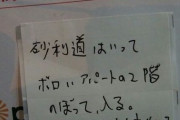 砂利道はいって
ボロいアパートの2階
のぼって、入る。